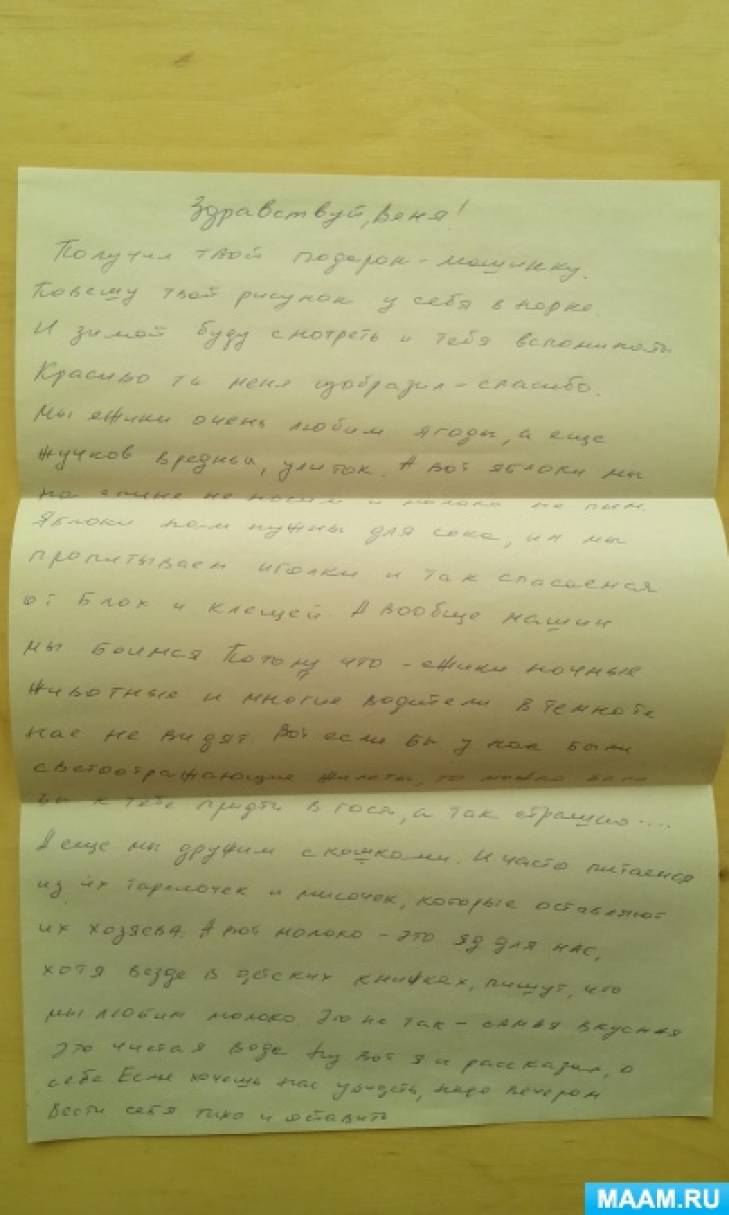 Здравствуй, Веня!
Получил твой подарок - машинку.
Повешу твой рисунок у себя в норке.
И зимой буду смотреть и тебя вспоминать
Красиво ты меня изобразил - спасибо.
Мы ежики очень любим ягоды, а еще
жучков вредных, улиток. А вот яблоки мы
на спине не носим и молоко не пьем.
Яблоки нам нужны для сока, им мы
пропитываем иголки и так спасаемся
от блох и клещей. А вообще машин
мы боимся Потому что - ежики ночные
животные и многие водители в темноте
нас не видят. Вот если бы у нас были
светоотражающие жилеты, то можно было
бы к тебе придти в гости, а так страшно....
А еще мы дружим с кошками. И часто питаемся
из их тарелочек и мисочек, которые оставляют
их хозяева. А вот молоко - это яд для нас,
хотя везде в детских книжках, пишут, что
мы любим молоко. Это не так - самая вкусная
это чистая вода. Ну вот я и рассказал, о
себе. Если хочешь нас увидеть, надо вечером
вести себя тихо и оставить
MAAM.RU